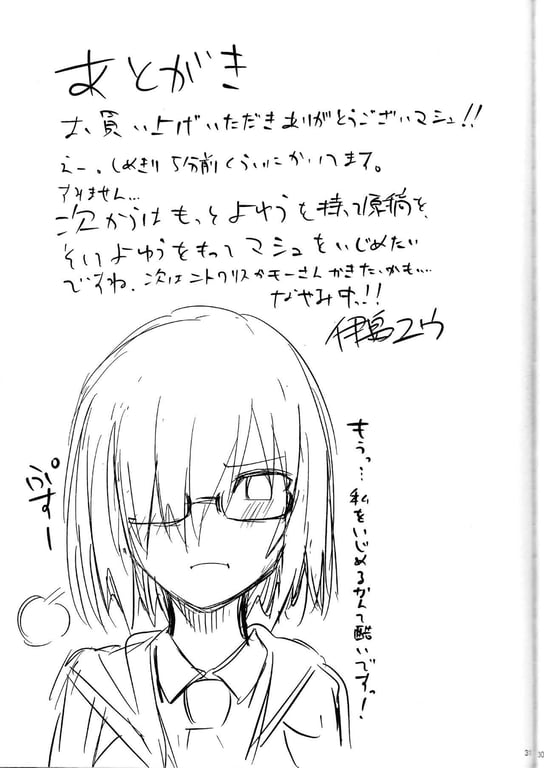 あとがき
お買い上げいただきありがとうございマシュ!!
えー、しめきり5分前くらいにかいてます。
すみません…
次からはもっとよゆうを持って原稿を、
そしてよゆうをもってマシュをいじめたい
ですね、次はニトクリスかモーさんかきたいかも…
なやみ中!!
伊島ユウ
もうっ…私をいじめるなんて酷いですっ!
ぷすー
31
30